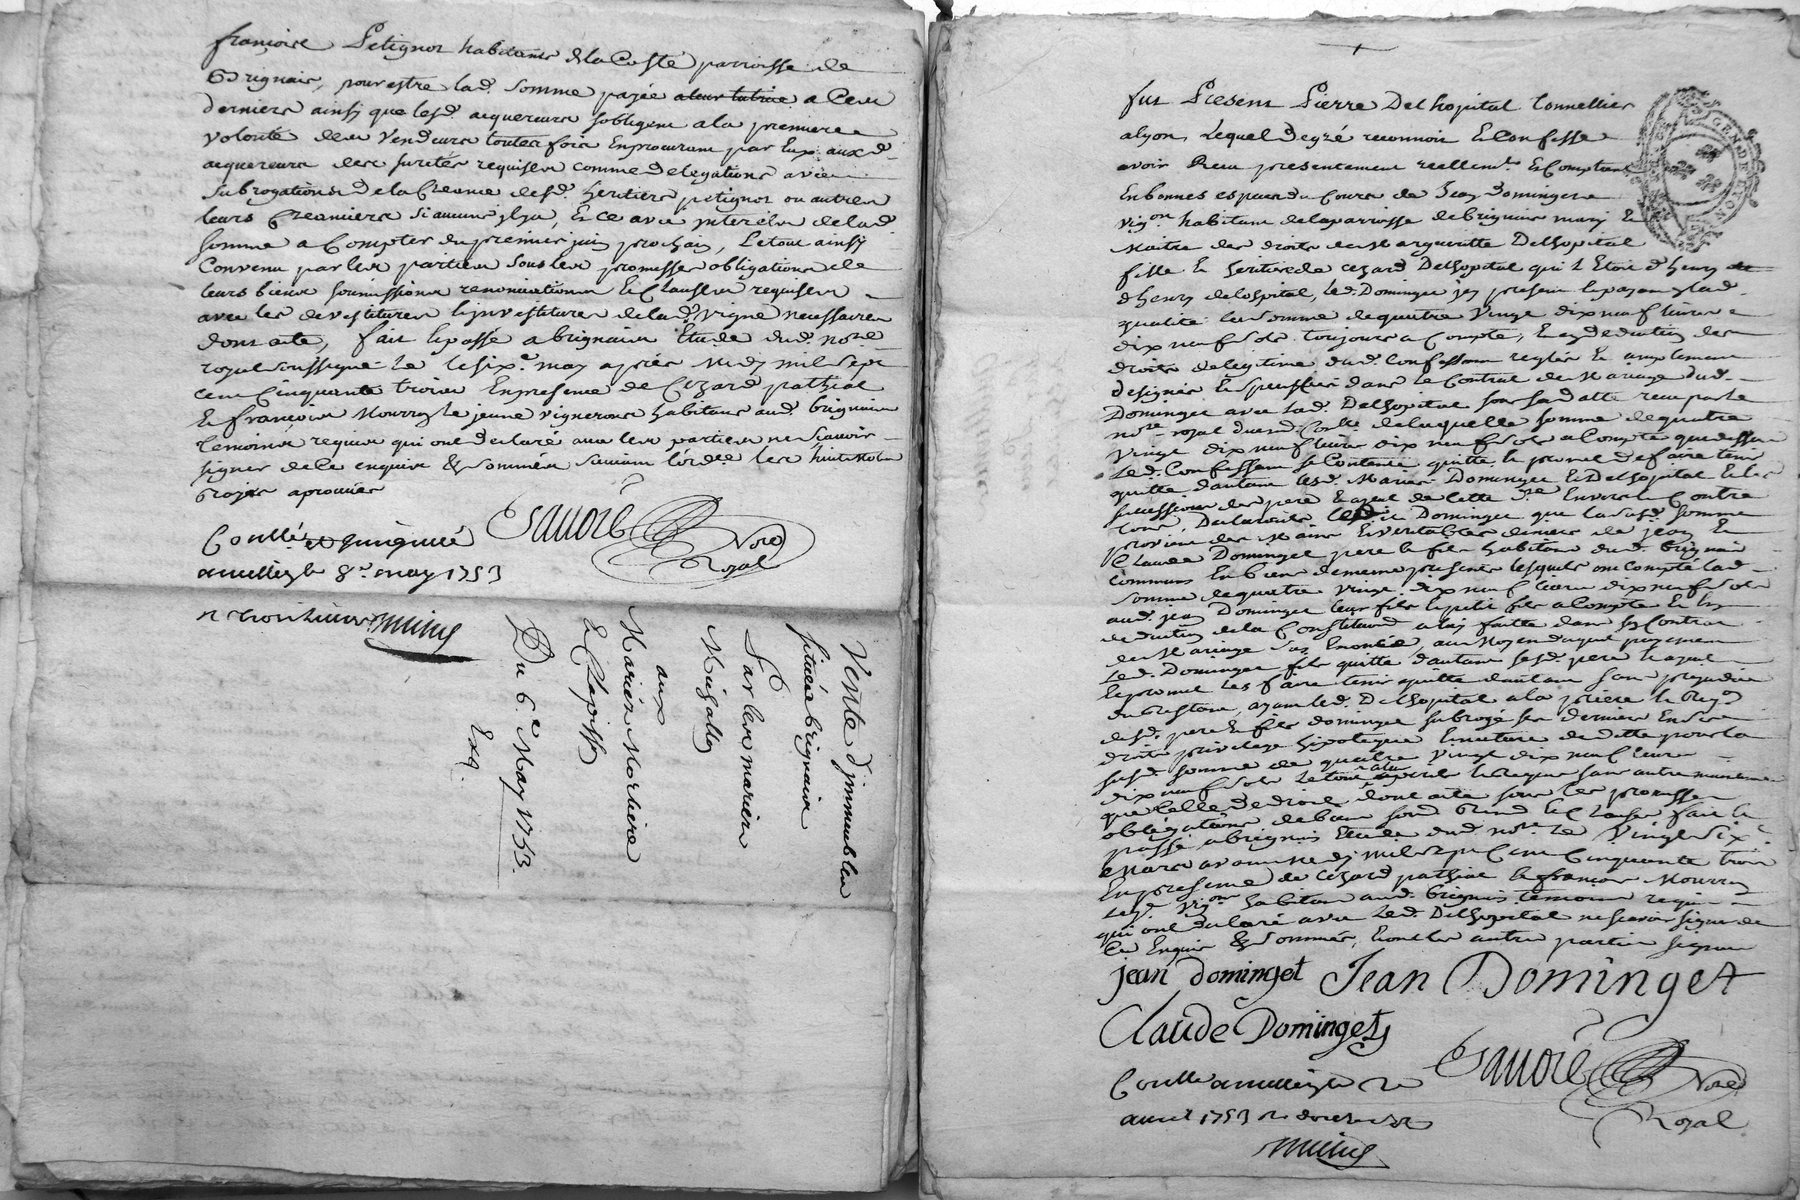 françoise Petignot habitants de la Coste parroisse de
Brignais, pour estre lad. somme payée a leur tutrice a Ceux
derniers ainsy que lesd. acquereurs sobligent a la premiere
volonté des Vendeurs toutes fois En procurant par Eux auxd.
acquereurs des suretés requises comme delegations avec
Subrogations de la Creance desd. heritiers petignot ou autres
leurs Creanciers si aucuns y a, Et ce avec interets de lad.
somme a Compter du premier juin prochain, Le tout ainsy
Convenu par les parties sous les promesses obligations de
leurs biens soumissions renonciations Et Clauses requises
avec les devestitures Et investitures de lad. vigne necessaires
dont acte, fait Et passé a brignais Etude dud. no.re
royal soussigné le sixe. may après midy mil sept
cent Cinquante trois En presence de Cezard pathiat
Et françois Mourron le jeune vignerons habitans aud. brignais
temoins requis qui ont declaré avec les parties ne scavoir
signer de ce enquis & sommés suivant lord.ce les huit mots
rayés aprouvés
Conllé et quigniué
Savoré Nore. Royal
a millery le 8e. may 1753
Vente d'immeubles
située a brignais
Par les mariés
Mugallet
aux
Mariés Morliere
Et Chapotte
Du 6.e May 1753.
Exq.
+
GEN. DE LYON
fut Present Pierre Delhopital tonnellier
a lyon, Lequel de gré reconnoit Et Confesse
avoir Receu presentement reellem.t Et Comptant
En bonnes especes du Cours de Jean Dominget
vig.on habitant de la parroisse de brignais mary Et
Maitre des droits de Marguerite Delhopital
fille Et heritiere de Cezard Delhopital qui L'Etoit d'henry
d'henry delhospital, led. Dominget icy present Et payant en lad.
qualité la somme de quatre Vingt dix neuf livres
dix neuf sols toujours a Compte, Et en deduction des
droits de legitime dud. Confessant reglés Et amplement
designés Et specifiés dans le Contrat de Mariage dud.
Dominget avec lad. Delhopital sous sa datte receu par le
no.re royal de laquelle somme de quatre
Vingt dix neuf livres dix neuf sols a Compte que dessus
Led. Confessant se Contente quitte Et promet de faire tenir
quitte d'autant lesd. Mariés Dominget Et Delhopital Et les
successions des pere Et ayeul de cette D.re Envers Et Contre
tous, Declarant led. Dominget que lad. somme
provient des Mains Et veritables deniers de jean Et
Claude Dominget pere Et fils habitans dud. brignais
communs En biens de meme presents lesquels ont compté lad.
somme de quatre vingt dix neuf livres dix neuf sols
aud. jean Dominget leur fils Et petit fils a Compte Et En
deduction de la Constitution a luy faitte dans son Contrat
de Mariage sus Enoncé, au Moyen duquel payement
Led. Dominget fils quitte d'autant sesd. pere Et ayeul
Et promet les faire tenir quitte d'autant sans prejudice
du Restant, ayant led. Delhopital a la priere Et Req.on
desd. pere Et fils dominget subrogé ces derniers En ses
droits privilege hipoteque Et nature de dette pour la
susd. somme de quatre Vingt dix neuf livres
dix neuf sols Le tout a leur peril Et risque sans autre maintenue
que Celle de droit dont acte sous les promesses
obligations de biens soum. Renon. Et Clauses fait Et
passé a brignais Etude dud. no.re le Vingt six.e
Mars avant Midy mil sept Cent Cinquante trois
En presence de Cezard pathiat Et françois Mourron
Lejne. vig.ons habitans aud. brignais temoins requis
qui ont declaré avec led. Delhopital ne scavoir signer de
ce Enquis & Sommés, Et ont les autres parties signé
jean dominget Jean Dominget
Claude Domingets
Savoré Nore. Royal
Conllé a millery le 2e
avril 1753